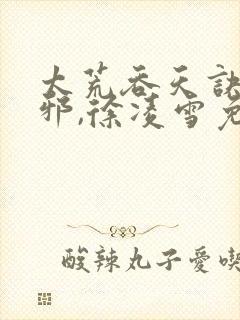 大荒吞天訣
邪,徐凌雪免
酸辣丸子愛喫